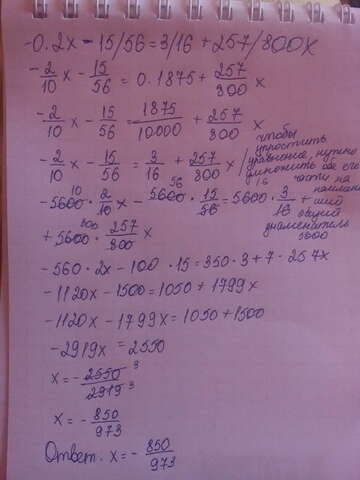 -0.2x - 15/56 = 3/16 + 257/800x
-2/10 x - 15/56 = 0.1875 + 257/800 x
-2/10 x - 15/56 = 1875/10000 + 257/800 x
-2/10 x - 15/56 = 3/16 + 257/800 x /
чтобы
упростить
уравнение, нужно
умножить обе его
части на
наимень
ший
общий
знаменатель
5600
-5600 · 2/10 x - 5600 · 15/56 = 5600 · 3/16 +
+ 5600 · 257/800 x
-560 · 2x - 100 · 15 = 350 · 3 + 7 · 257x
-1120x - 1500 = 1050 + 1799x
-1120x - 1799x = 1050 + 1500
-2919x = 2550
x = - 2550/2919 3 3
x = - 850/973
Ответ. x = - 850/973